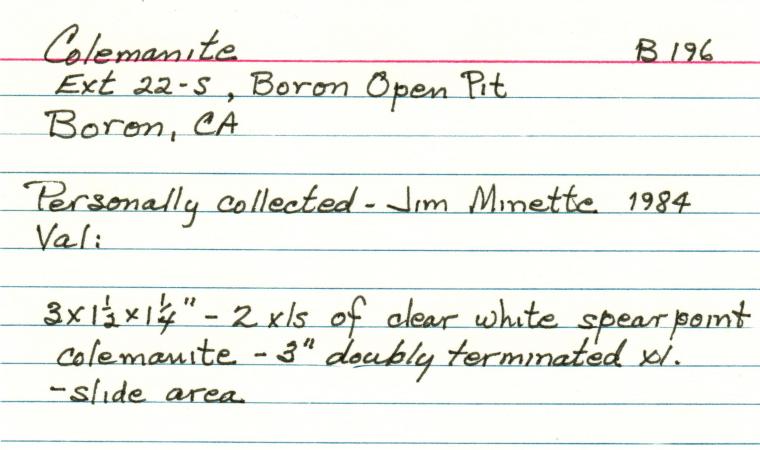 Colemanite B 196
Ext 22-S, Boron Open Pit
Boron, CA
Personally collected - Jim Minette 1984
Val:
3x1½x1¼" - 2 xls of clear white spearpoint
colemanite - 3" doubly terminated xl.
-slide area